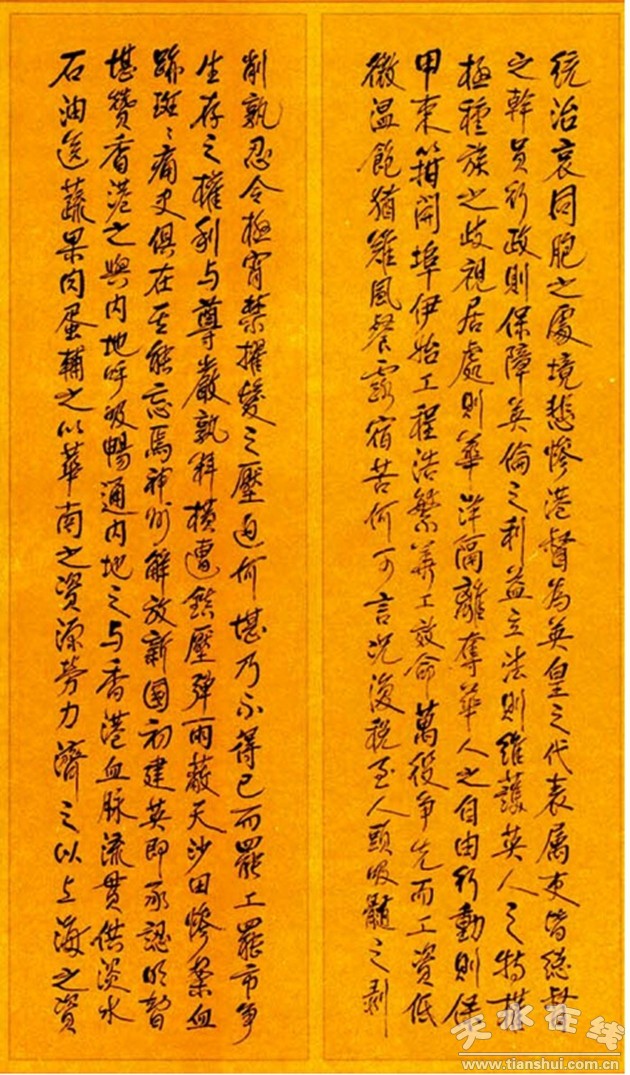 統治哀同胞之處境悲惨港督為英皇之代表属吏皆總督
之幹員行政則保障英倫之利益立法則維護英人之特權
極種族之歧視居處則華洋隔離奪華人之自由行動則保
甲束箝開埠伊始工程浩繁華工效命萬役争先而工資低
微温飽猶難風餐露宿苦何可言况復税至人頭吸髓之剥
削孰忍令極宵禁擢髮之壓迫何堪乃不得已而罷工罷市争
生存之權利与尊嚴孰料横遭鎮壓彈雨蔽天沙田惨案血
跡斑々痛史俱在豈能忘焉神州解放新國初建英即承認明智
堪贊香港之與内地呼吸暢通内地之与香港血脉流贯供淡水
石油送蔬果肉蛋輔之以華南之資源勞力濟之以上海之資
天水在线
www.tianshui.com.cn